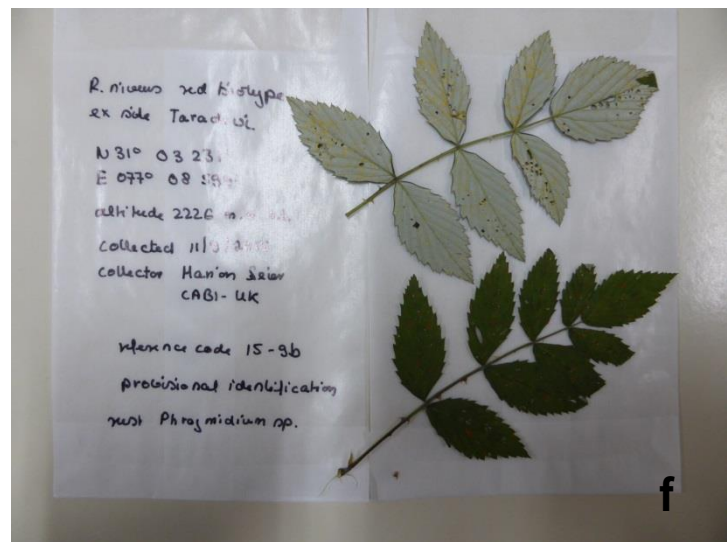 R. niveus red biotype
ex side Taradevi
N 31° 03 23
E 077° 08
altitude 2226
collected 11/9/
collector Marion Seier
CABI - UK
reference code 15-9b
provisional identification
rust Phragmidium sp.
f